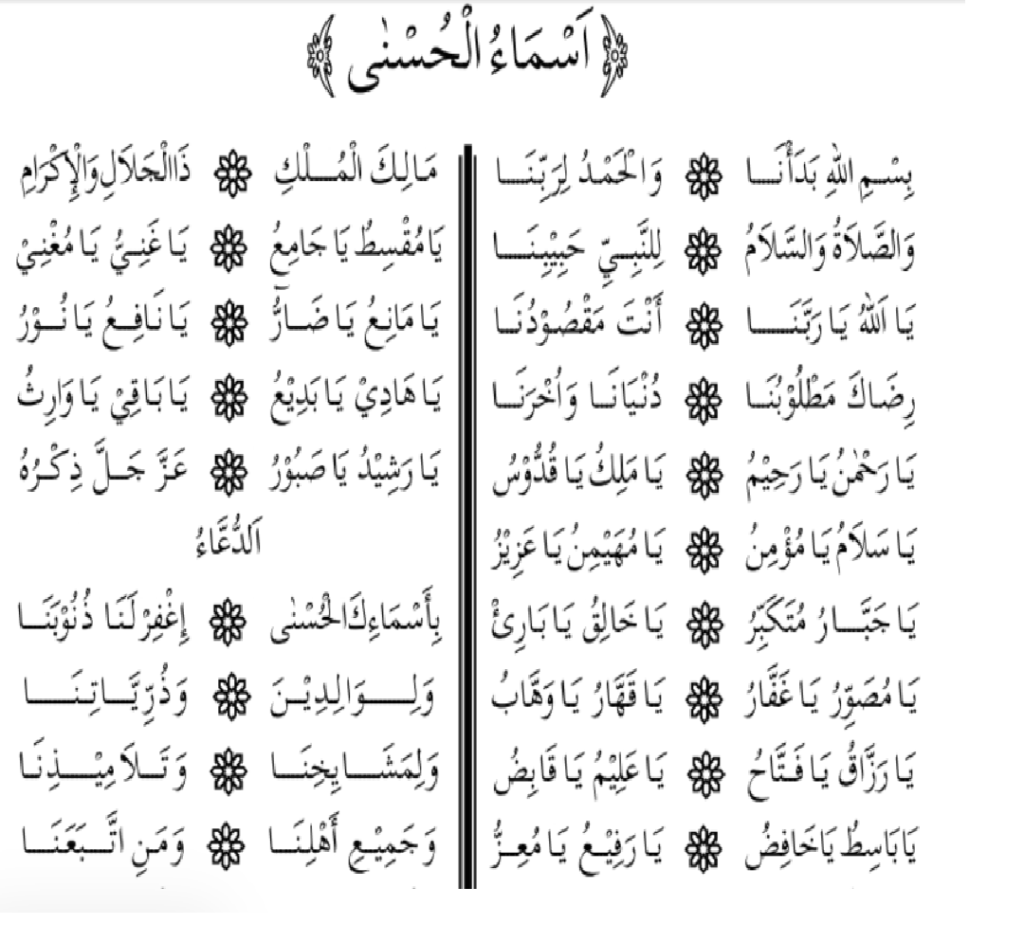 ﴿ اَسْمَاءُ الْحُسْنٰى ﴾
بِسْمِ اللّٰهِ بَدَأْنَا ۞ وَالْحَمْدُ لِرَبِّنَا
وَالصَّلَاةُ وَالسَّلَامُ ۞ لِلنَّبِيِّ حَبِيْبِنَا
يَا اَللّٰهُ يَا رَبَّنَا ۞ أَنْتَ مَقْصُوْدُنَا
رِضَاكَ مَطْلُوْبُنَا ۞ دُنْيَانَا وَأُخْرَنَا
يَا رَحْمٰنُ يَا رَحِيْمُ ۞ يَا مَلِكُ يَا قُدُّوْسُ
يَا سَلَامُ يَا مُؤْمِنُ ۞ يَا مُهَيْمِنُ يَا عَزِيْزُ
يَا جَبَّارُ مُتَكَبِّرُ ۞ يَا خَالِقُ يَا بَارِئْ
يَا مُصَوِّرُ يَا غَفَّارُ ۞ يَا قَهَّارُ يَا وَهَّابُ
يَا رَزَّاقُ يَا فَتَّاحُ ۞ يَا عَلِيْمُ يَا قَابِضُ
يَابَاسِطُ يَاخَافِضُ ۞ يَا رَفِيْعُ يَا مُعِزُّ
مَالِكَ الْمُلْكِ ۞ ذَاالْجَلَالِ وَالْإِكْرَامِ
يَامُقْسِطُ يَا جَامِعُ ۞ يَا غَنِيُّ يَا مُغْنِيْ
يَا مَانِعُ يَا ضَارُّ ۞ يَا نَافِعُ يَا نُوْرُ
يَا هَادِيْ يَا بَدِيْعُ ۞ يَا بَاقِيْ يَا وَارِثُ
يَا رَشِيْدُ يَا صَبُوْرُ ۞ عَزَّ جَلَّ ذِكْرُهُ
اَلدُّعَاءُ
بِأَسْمَاءِكَ الْحُسْنٰى ۞ إِغْفِرْ لَنَا ذُنُوْبَنَا
وَلِوَالِدِيْنَ ۞ وَذُرِّيَّاتِنَا
وَلِمَشَايِخِنَا ۞ وَتَلَامِيْذِنَا
وَجَمِيْعِ أَهْلِنَا ۞ وَمَنِ اتَّبَعَنَا